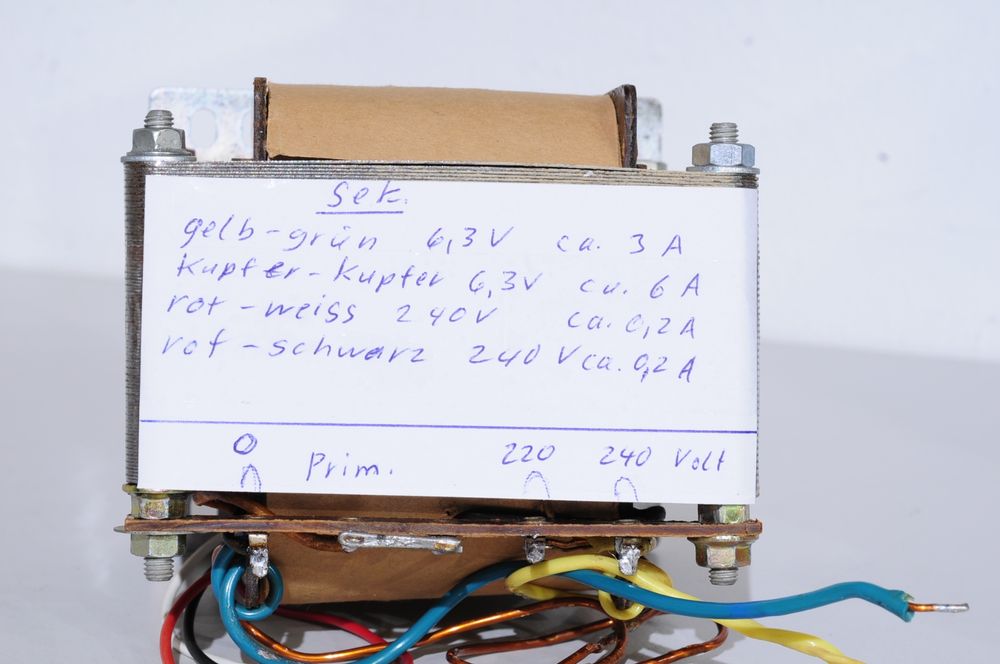 Sek.
gelb-grün 6,3V ca. 3 A
Kupfer-Kupfer 6,3V ca. 6 A
rot-weiss 240V ca. 0,2A
rot-schwarz 240 V ca. 0,2 A
0 Prim. 220 240 Volt